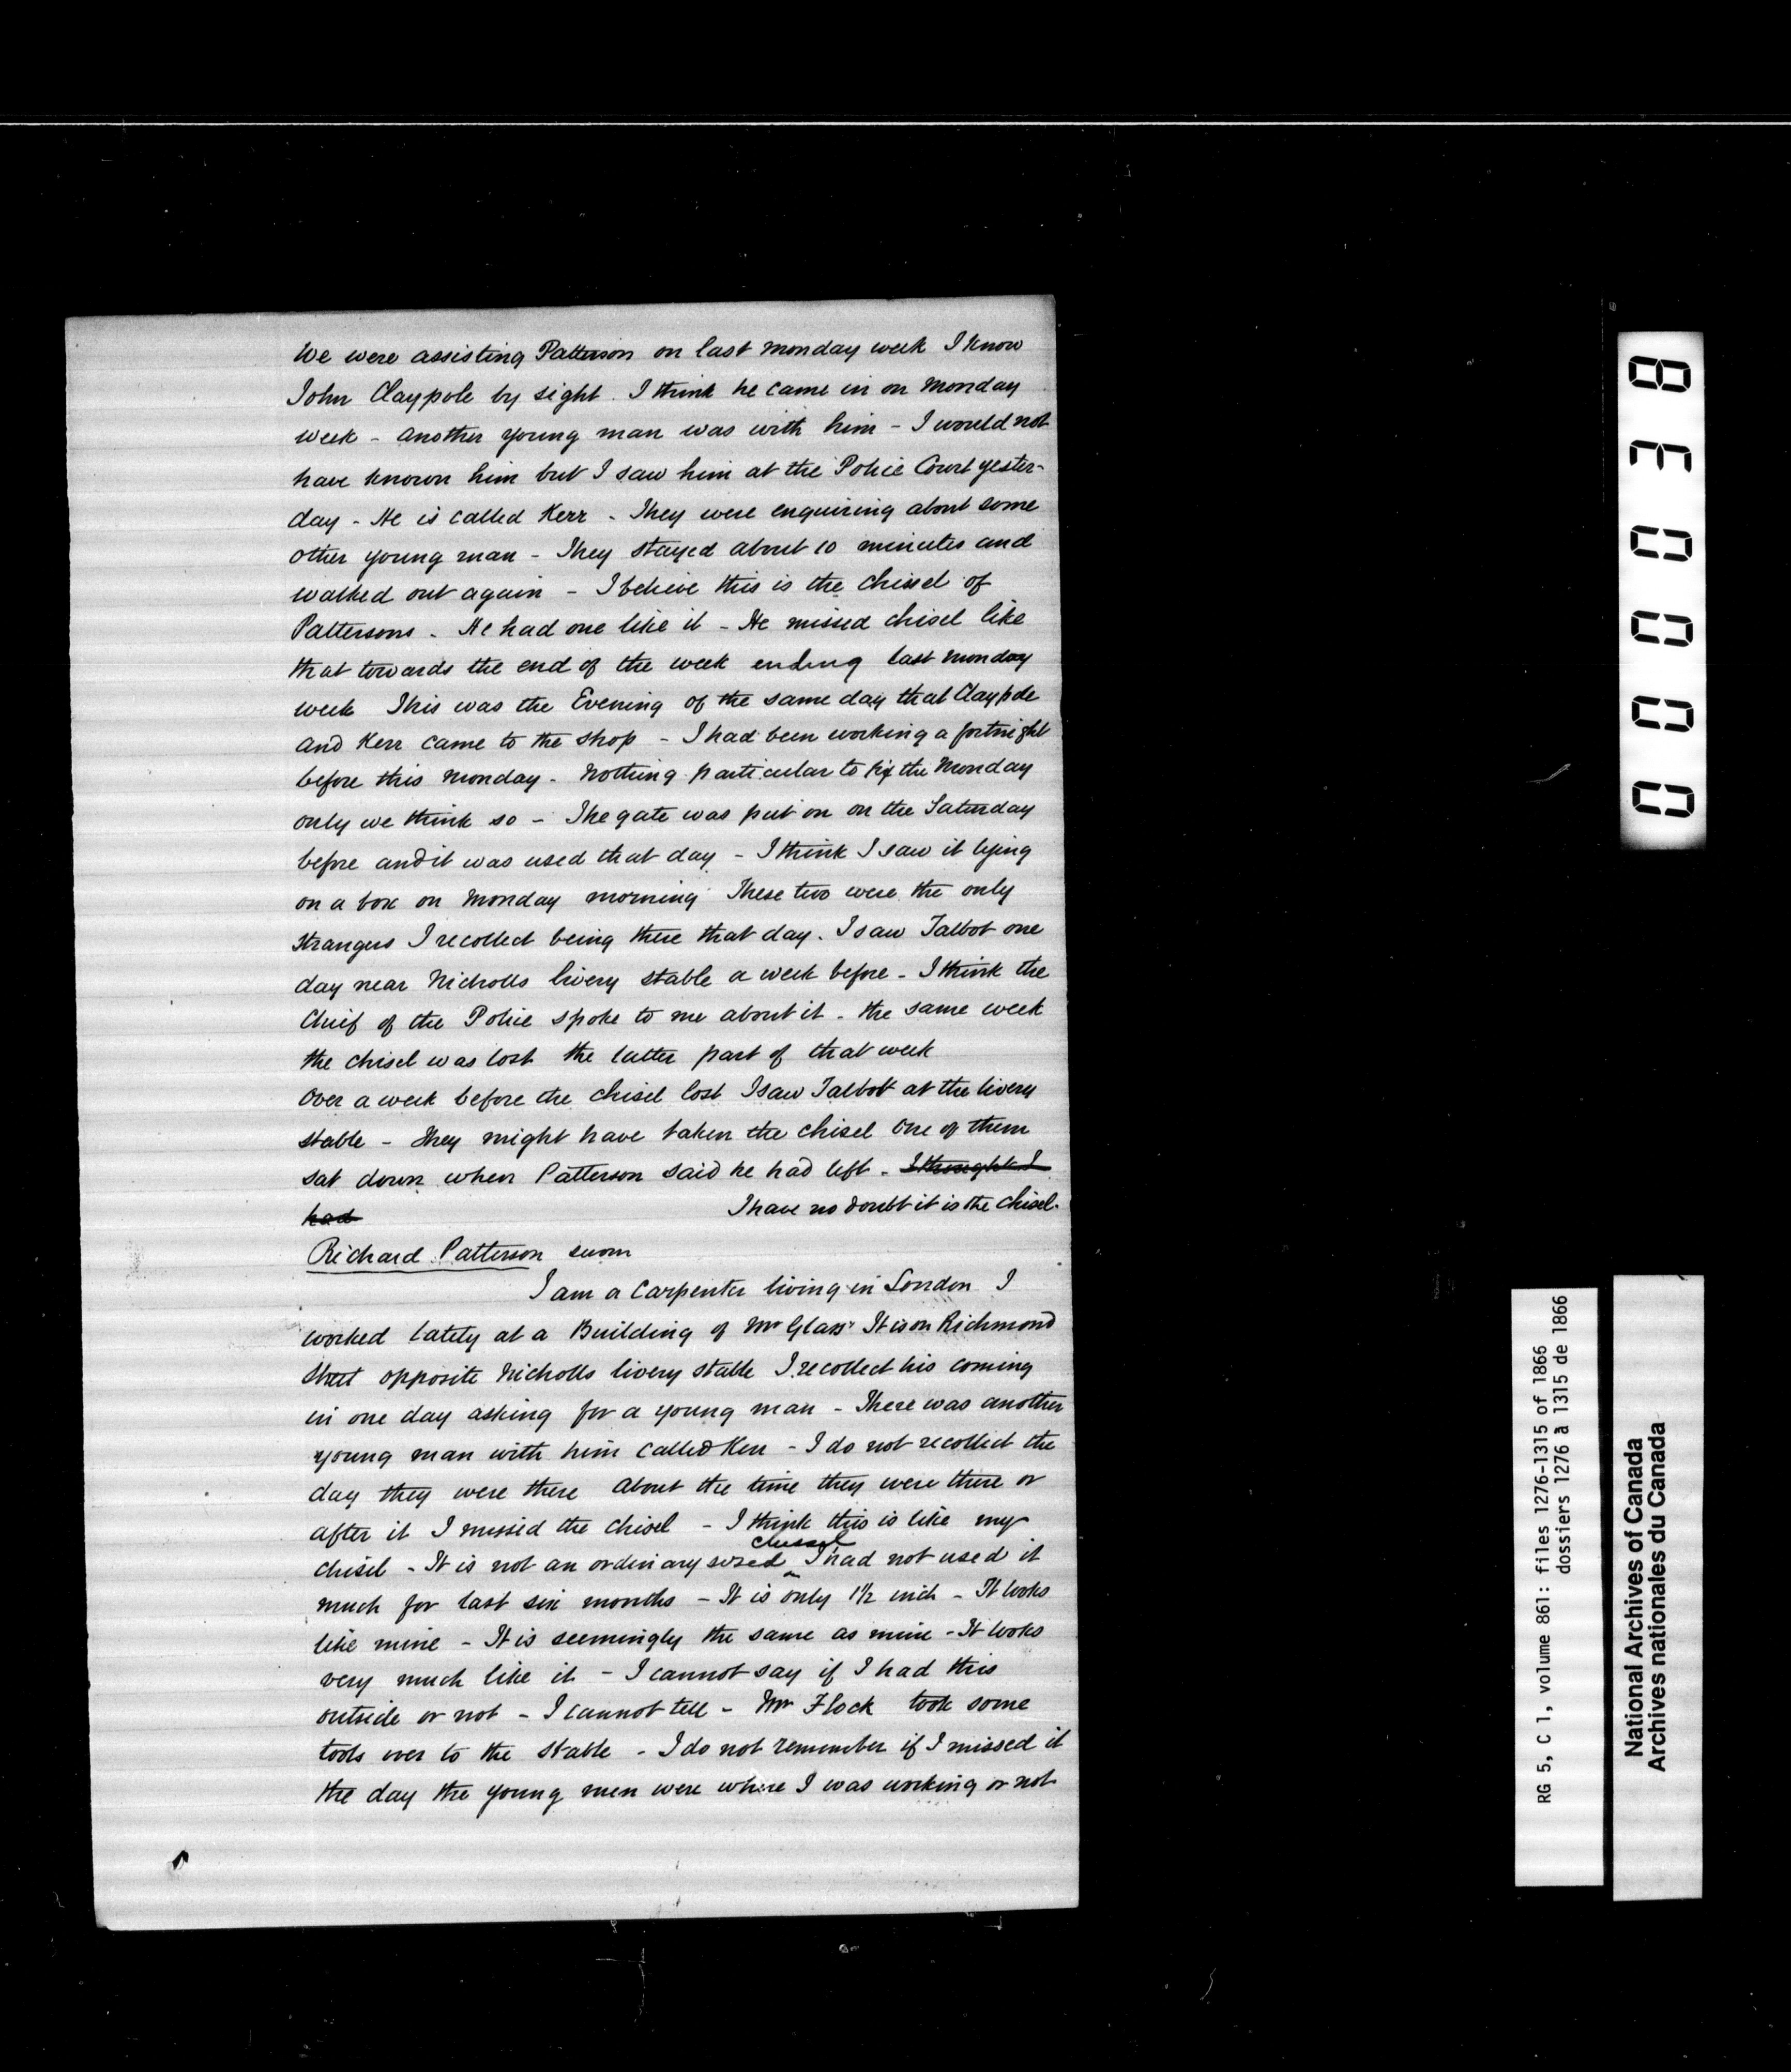 We were assisting Patterson on last monday week I know
John Claypole by sight. I think he came in on Monday
week - another young man was with him - I would not
have known him but I saw him at the Police Court yester-
day - He is called Kerr - They were enquiring about some
other young man - They stayed about 10 minutes and
walked out again - I believe this is the chisel of
Pattersons - He had one like it - He missed chisel like
that towards the end of the week ending last monday
week This was the Evening of the same day that Claypole
and Kerr came to the shop - I had been working a fortnight
before this monday - Nothing particular to fix the Monday
only we think so - The gate was put on on the Saturday
before and it was used that day - I think I saw it lying
on a box on Monday morning These two were the only
strangers I recollect being there that day. I saw Talbot one
day near Nicholls livery stable a week before - I think the
Chief of the Police spoke to me about it - the same week
the chisel was lost the latter part of that week
Over a week before the chisel lost I saw Talbot at the livery
stable - They might have taken the chisel One of them
sat down when Patterson said he had left - I thought I
had I have no doubt it is the chisel.
Richard Patterson sworn
I am a Carpenter living in London I
worked lately at a Building of Mr Glass' It is on Richmond
Street opposite Nicholls livery stable I recollect his coming
in one day asking for a young man - There was another
young man with him called Kerr - I do not recollect the
day they were there About the time they were there or
after it I missed the chisel - I think this is like my
chisel - It is not an ordinary sized chissel I had not used it
much for last six months - It is only 1½ inch - It looks
like mine - It is seemingly the same as mine - It looks
very much like it - I cannot say if I had this
outside or not - I cannot tell - Mr Flock took some
tools over to the stable - I do not remember if I missed it
the day the young men were where I was working or not
000038
RG 5, C 1, volume 861: files 1276-1315 of 1866
dossiers 1276 à 1315 de 1866
National Archives of Canada
Archives nationales du Canada